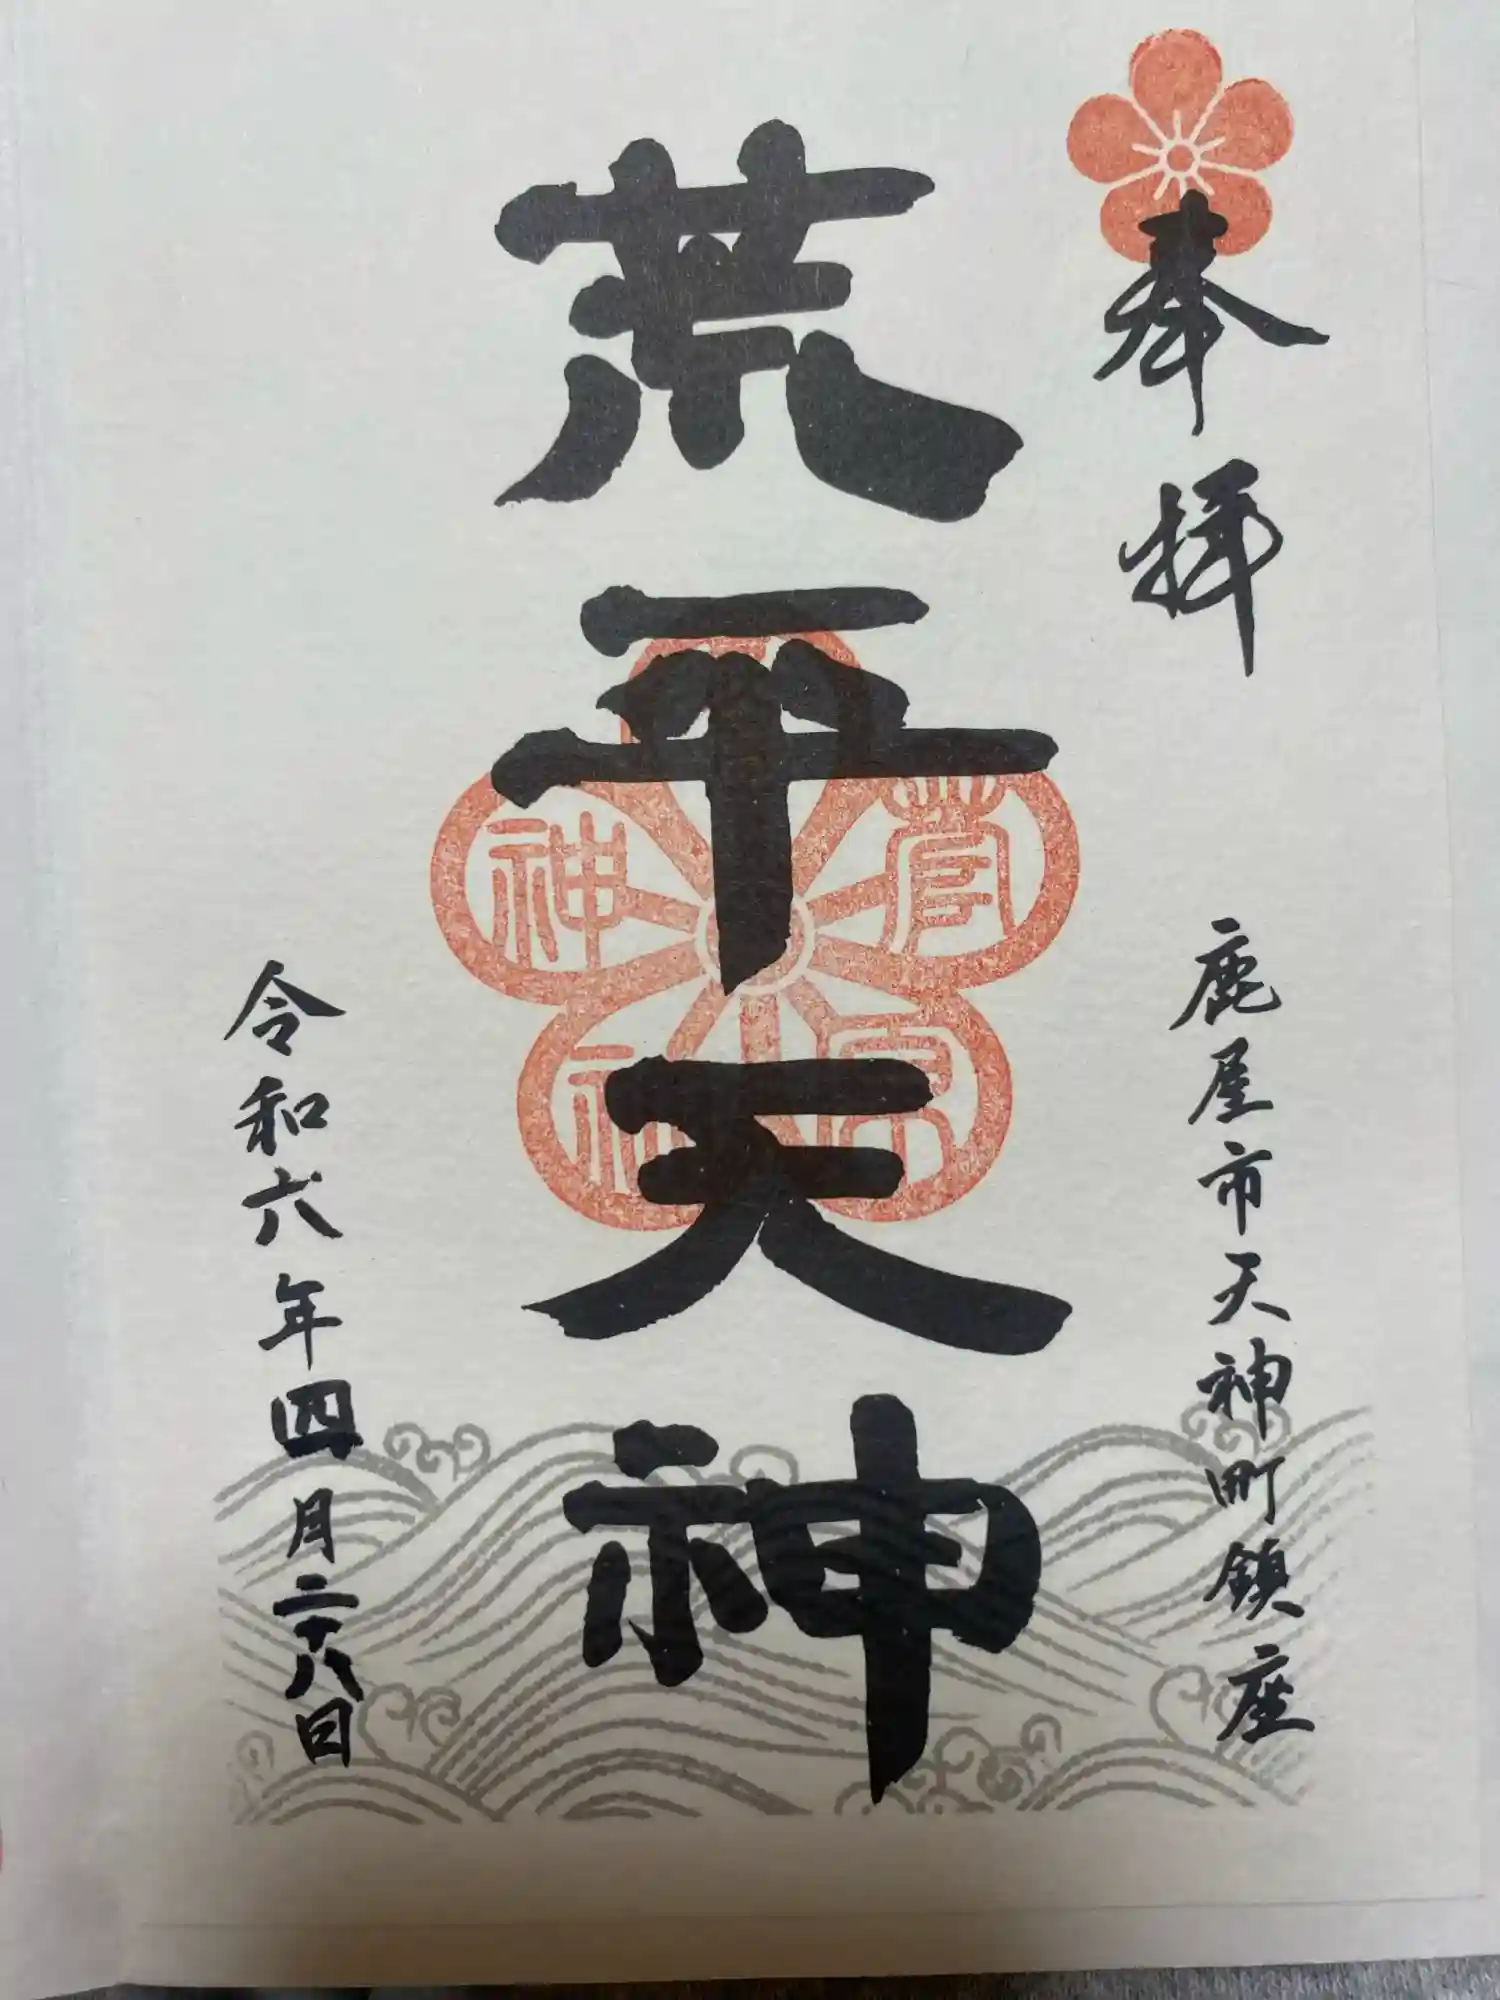 奉拝
鹿屋市天神町鎮座
荒平天神
令和六年四月二十八日
菅
神